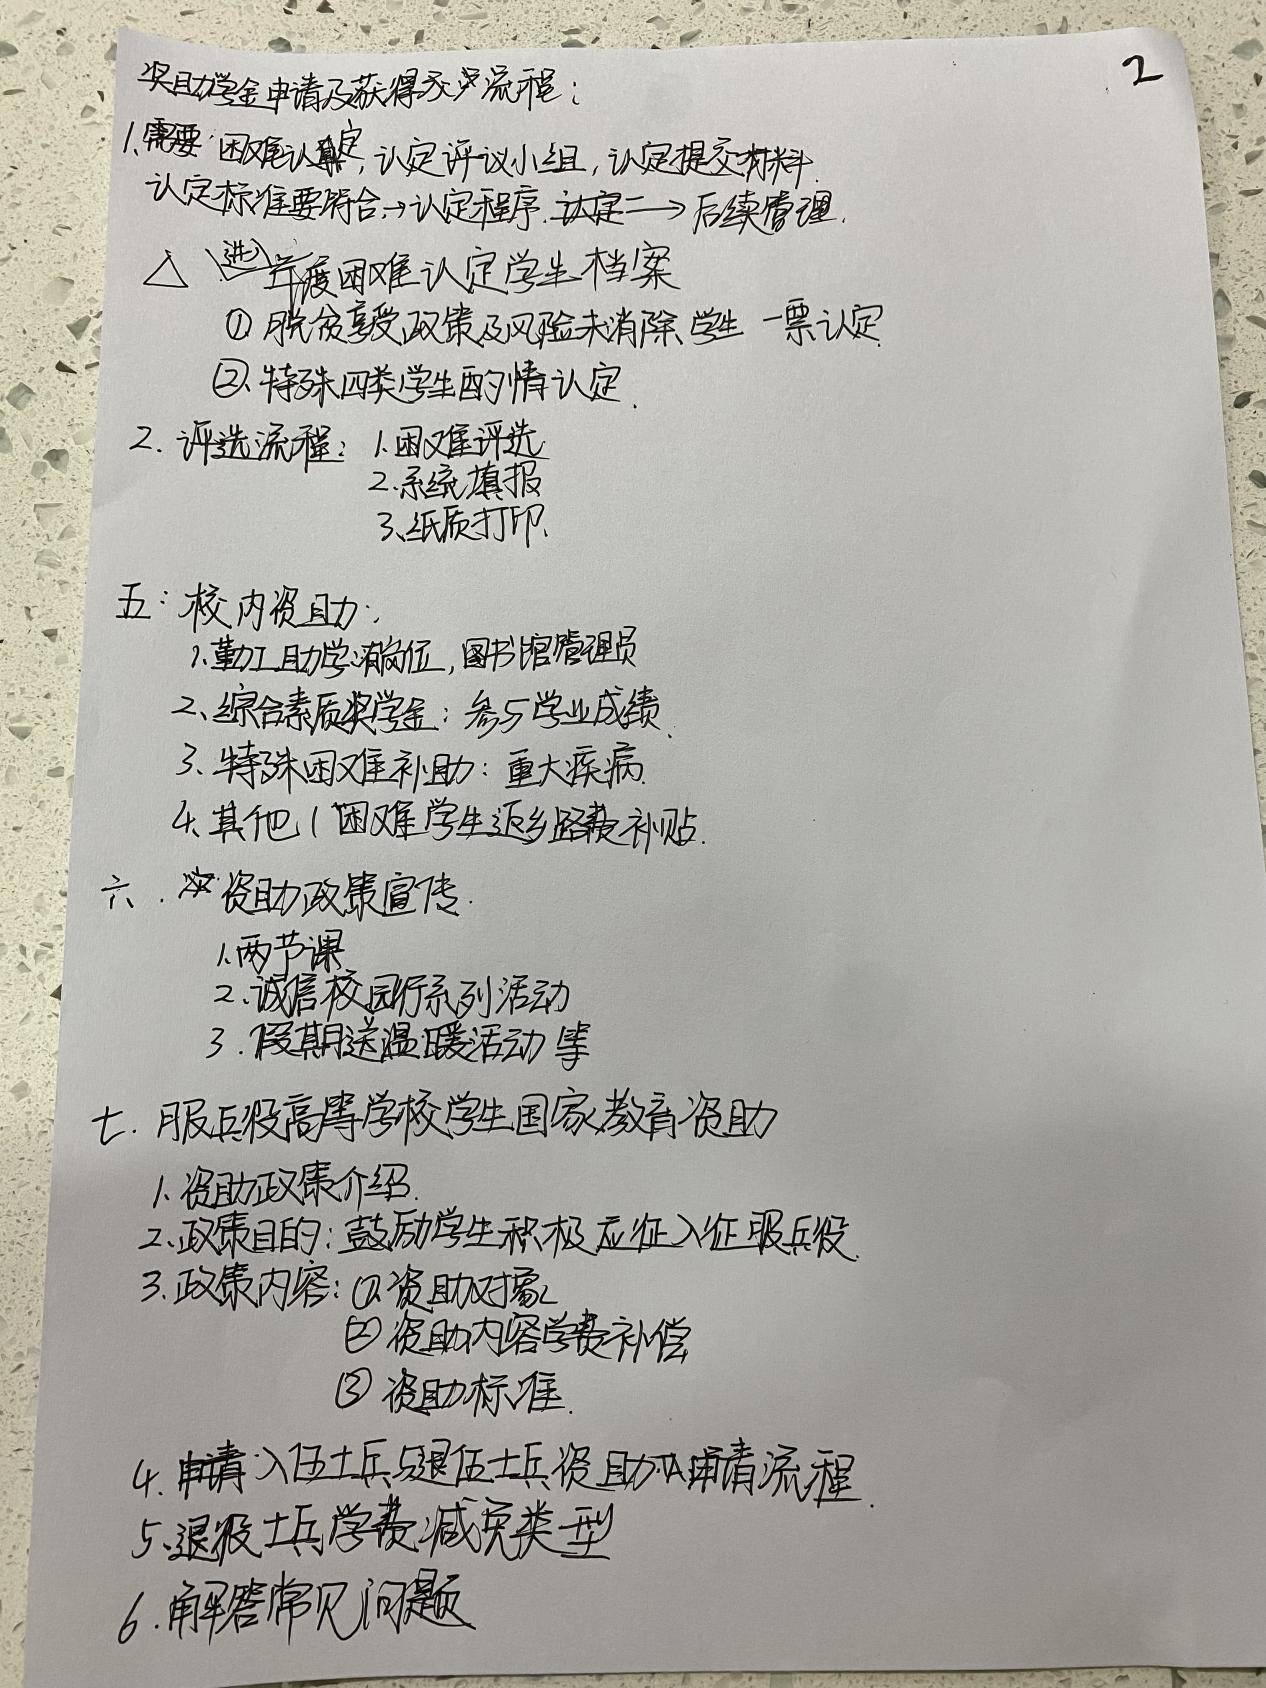 2
奖助学金申请及获得流程:
1、需要:困难认定,认定评议小组,认定提交材料.
认定标准要符合,→认定程序.认定二→后续管理.
△ 进 年度困难认定学生档案
① 脱贫享受政策及风险未消除学生 一票认定.
②、特殊四类学生酌情认定.
2. 评选流程: 1.困难评选
2.系统填报
3、纸质打印.
五:校内资助:
1.勤工助学:有岗位,图书馆管理员
2、综合素质奖学金:参与学业成绩.
3、特殊困难补助:重大疾病.
4、其他(困难学生返乡路费补贴.
六.☆资助政策宣传.
1.两节课
2、诚信校园行系列活动
3.假期送温暖活动等
七.服兵役高等学校学生国家教育资助
1.资助政策介绍.
2、政策目的:鼓励学生积极应征入征服兵役.
3.政策内容:①资助对象
②资助内容学费补偿
③资助标准.
4.申请入伍士兵与退伍士兵资助申请流程.
5、退役士兵学费减免类型
6.解答常见问题